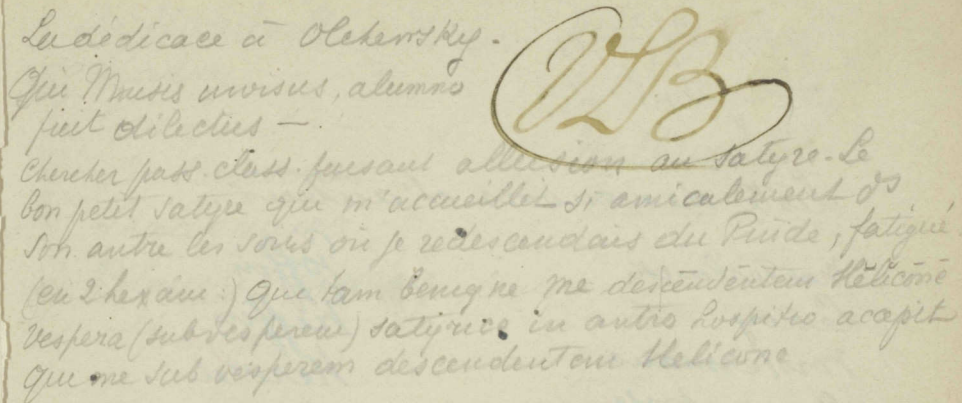 La dédicace à Olchewsky.
VLB
Qui Musis invisus, alumno
fuit dilectus —
Chercher pass. class. faisant allusion au satyre. Le
bon petit satyre qui m'accueillit si amicalement ds
son antre les soirs où je redescendais du Pinde, fatigué
(en 2 hexam.) Qui tam benigne me descendentem Helicone
Vespera (sub vesperem) satyrico in antro hospitio accepit
Qui me sub vesperem descendentem Helicone